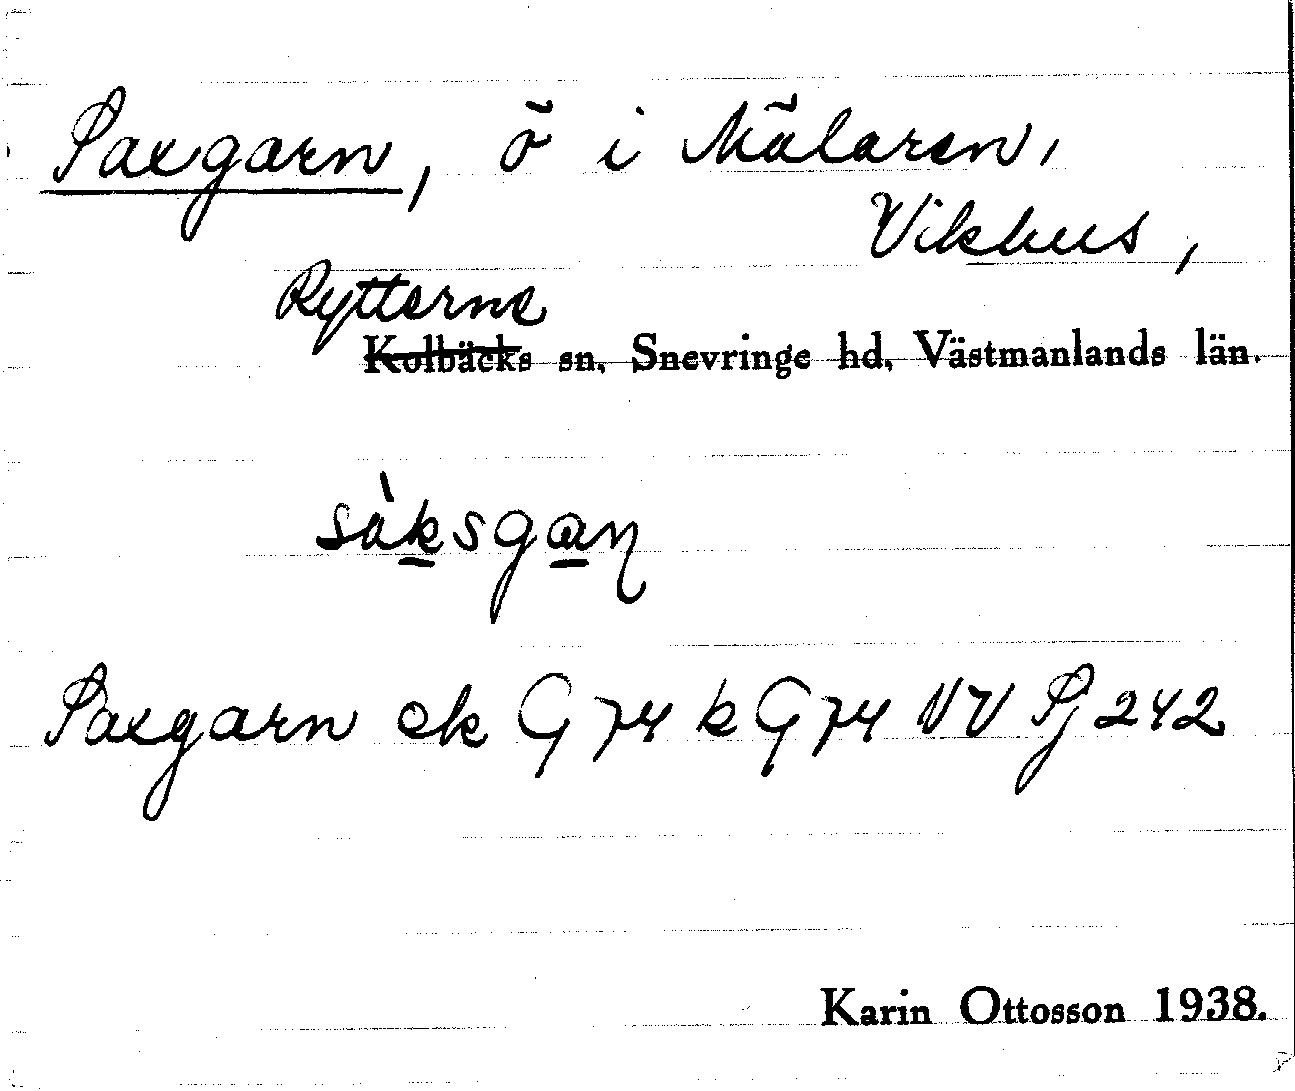 Saxgarn, ö i Mälaren,
Vikhus,
Rytterne
Kolbäcks sn, Snevringe hd, Västmanlands län.
sàksgaɳ
Saxgarn ek G 74 k G 74 NV Sj 242
Karin Ottosson 1938.